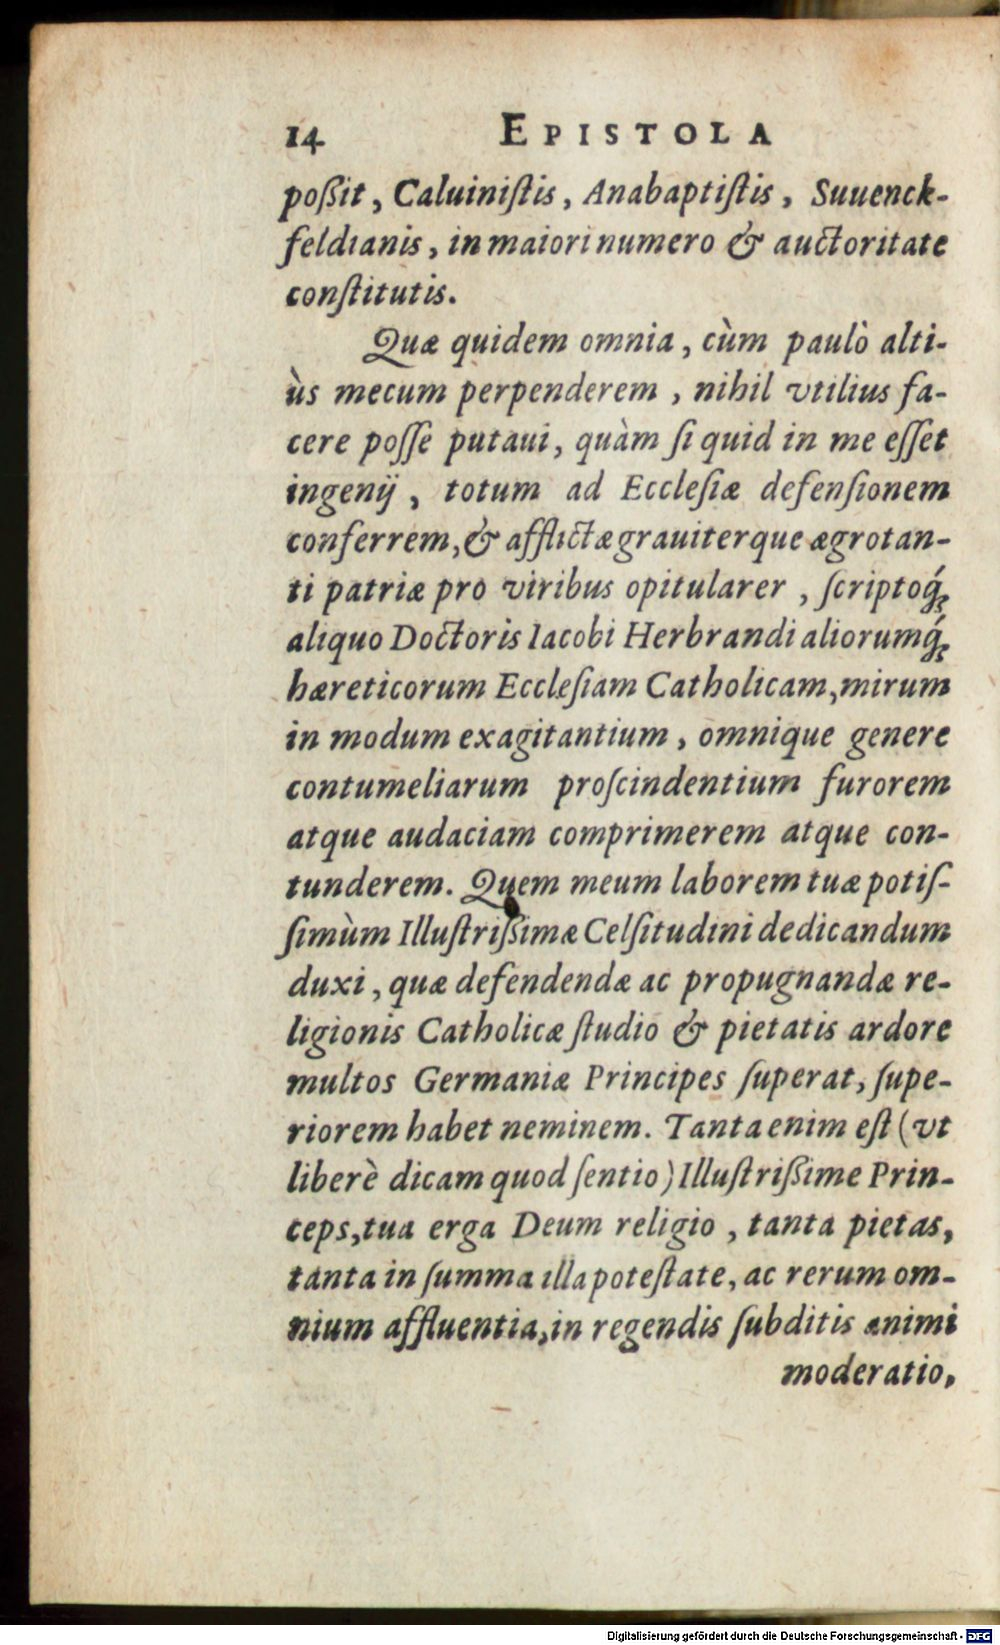 14 EPISTOLA
poßit, Caluiniſtis, Anabaptiſtis, Suuenck-
feldianis, in maiori numero & auctoritate
conſtitutis.
Quæ quidem omnia, cùm paulò alti-
ùs mecum perpenderem, nihil vtilius fa-
cere poſſe putaui, quàm ſi quid in me eſſet
ingenij, totum ad Eccleſiæ defenſionem
conferrem, & afflictæ grauiterque ægrotan-
ti patriæ pro viribus opitularer, ſcriptoq́;
aliquo Doctoris Iacobi Herbrandi aliorumq́;
hæreticorum Eccleſiam Catholicam, mirum
in modum exagitantium, omnique genere
contumeliarum proſcindentium furorem
atque audaciam comprimerem atque con-
tunderem. Quem meum laborem tuæ potiſ-
ſimùm Illuſtrißimæ Celſitudini dedicandum
duxi, quæ defendendæ ac propugnandæ re-
ligionis Catholicæ ſtudio & pietatis ardore
multos Germaniæ Principes ſuperat, ſupe-
riorem habet neminem. Tanta enim eſt (vt
liberè dicam quod ſentio) Illuſtrißime Prin-
ceps, tua erga Deum religio, tanta pietas,
tanta in ſumma illa poteſtate, ac rerum om-
nium affluentia, in regendis ſubditis animi
moderatio,
Digitalisierung gefördert durch die Deutsche Forschungsgemeinschaft - DFG